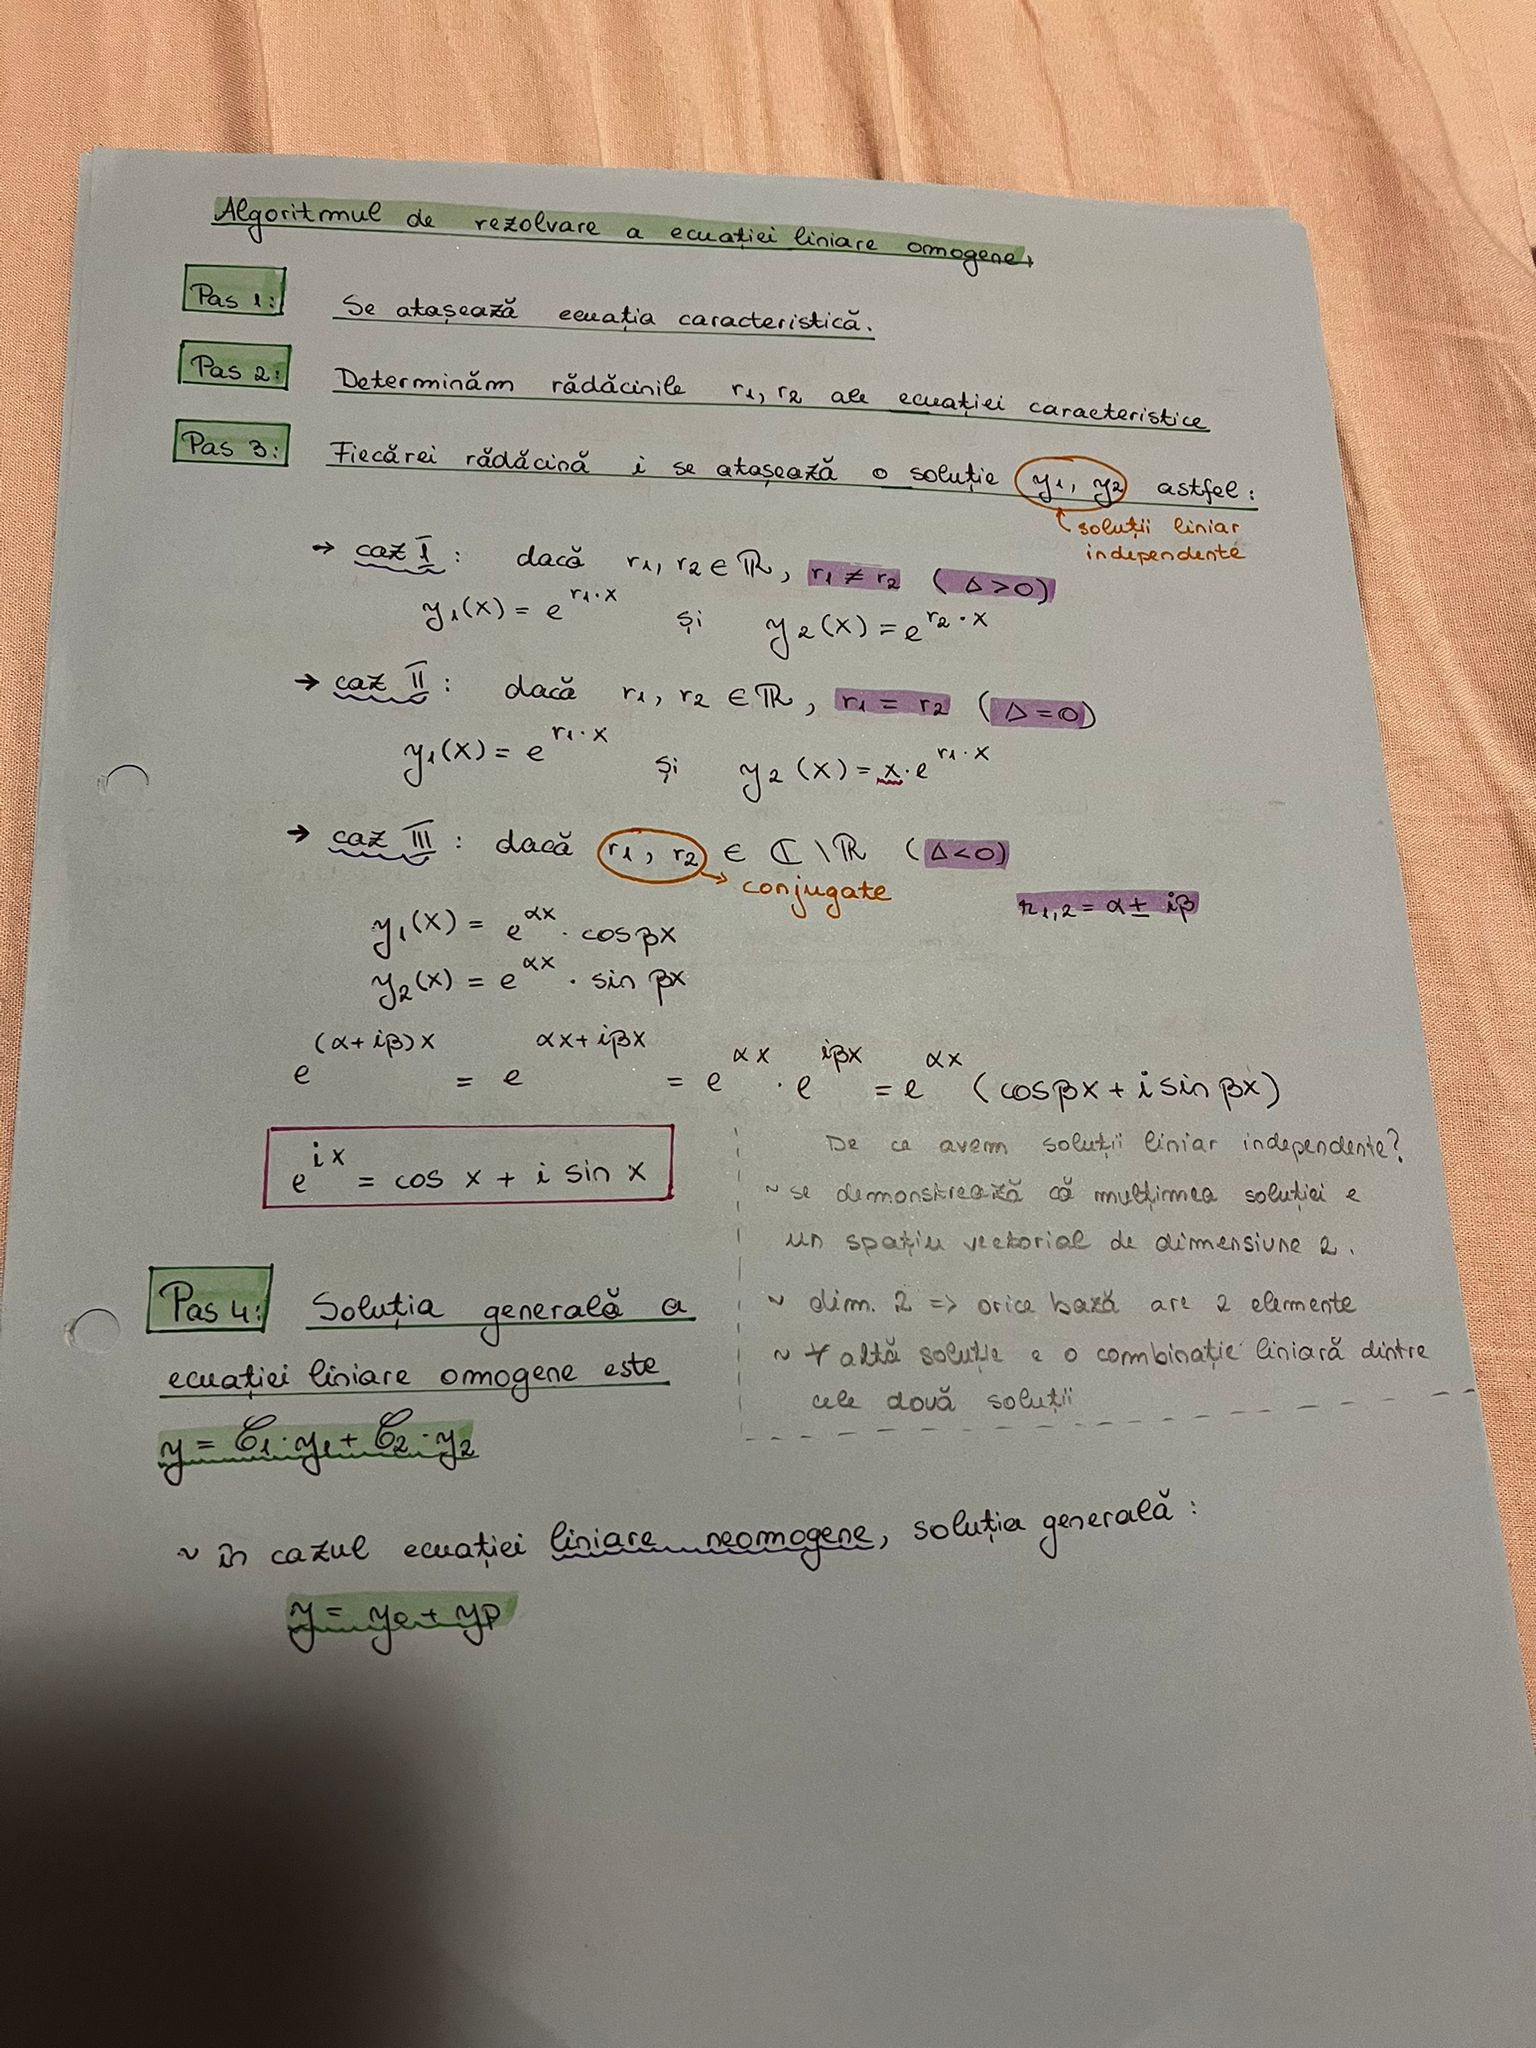 Algoritmul de rezolvare a ecuației liniare omogene.
Pas 1: Se atașează ecuația caracteristică.
Pas 2: Determinăm rădăcinile r1, r2 ale ecuației caracteristice
Pas 3: Fiecărei rădăcină i se atașează o soluție y1, y2 astfel:
soluții liniar
independente
→ caz I : dacă r1, r2 ∈ ℝ, r1 ≠ r2 (Δ>0)
y1(x) = e^(r1·x) și y2(x) = e^(r2·x)
→ caz II : dacă r1, r2 ∈ ℝ, r1 = r2 (Δ=0)
y1(x) = e^(r1·x) și y2(x) = x·e^(r1·x)
→ caz III : dacă r1, r2 ∈ ℂ\ℝ (Δ<0)
→ conjugate
r1,2 = α ± iβ
y1(x) = e^(αx) · cosβx
y2(x) = e^(αx) · sin βx
e^((α+iβ)x) = e^(αx+iβx) = e^(αx) · e^(iβx) = e^(αx) (cosβx + i sin βx)
e^(ix) = cos x + i sin x
De ce avem soluții liniar independente?
~ se demonstrează că mulțimea soluției e
un spațiu vectorial de dimensiune 2.
~ dim. 2 => orice bază are 2 elemente
~ ∀ altă soluție e o combinație liniară dintre
cele două soluții
Pas 4: Soluția generală a
ecuației liniare omogene este
y = C1·y1 + C2·y2
~ în cazul ecuației liniare neomogene, soluția generală :
y = yo + yp